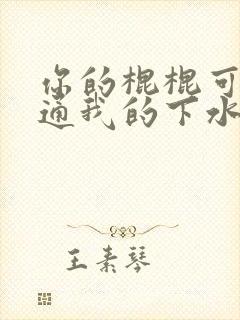 你的棍棍可
通我的下水
王素琴